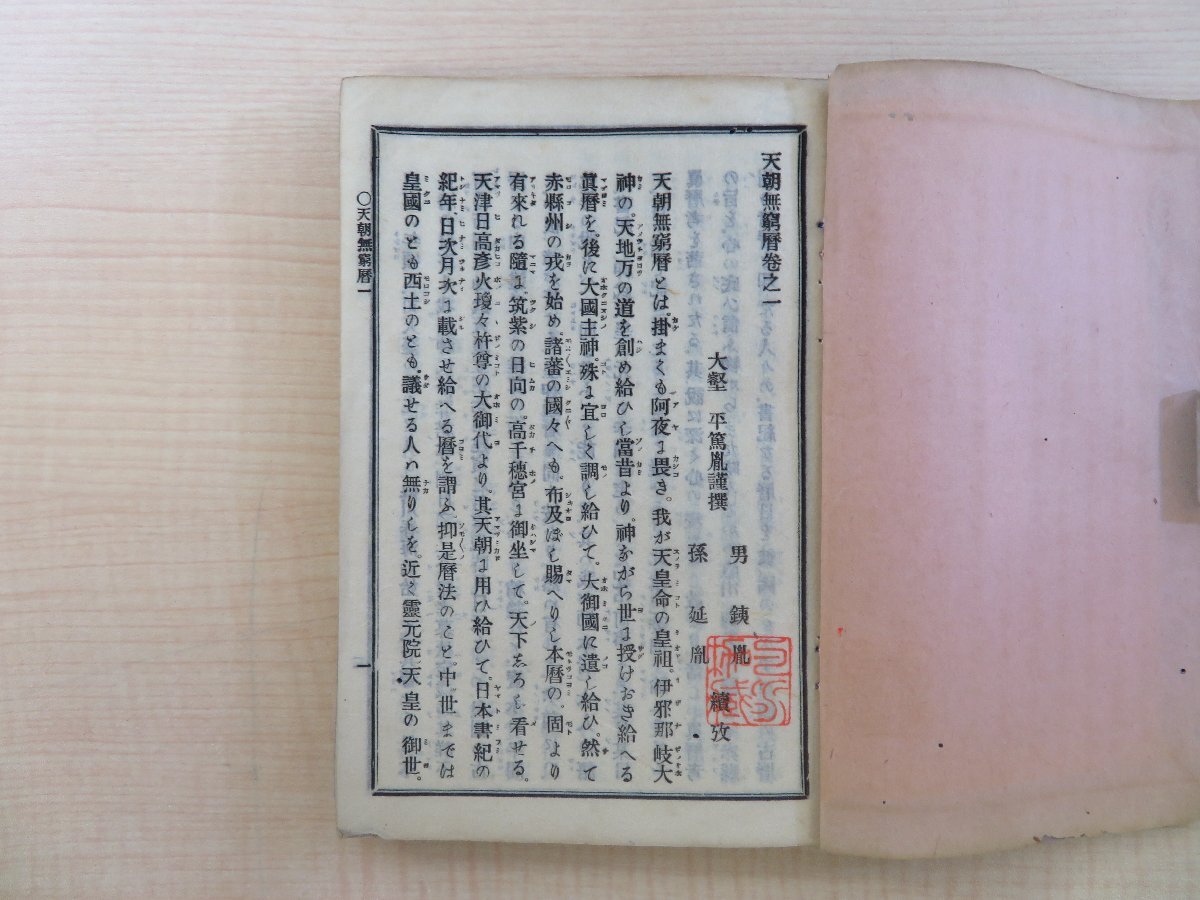 天朝無窮暦卷之一
大壑 平篤胤謹撰
男 銕胤
孫 延胤
續攷
天朝無窮暦とは。掛まくも阿夜に畏き。我が天皇命の皇祖。伊邪那岐大
神の。天地万の道を創め給ひし當昔より。神ながら世に授けおき給へる
眞暦を。後に大國主神。殊に宜しく調し給ひて。大御國に遺し給ひ。然て
赤縣州の戎を始め。諸蕃の國々へも。布及ぼし賜へりし本暦の。固より
有來れる隨に。筑紫の日向の。高千穗宮に御坐して。天下志ろし看せる。
天津日高彦火瓊々杵尊の大御代より。其天朝に用ひ給ひて。日本書紀の
紀年、日次月次に載させ給へる暦を謂ふ、抑是暦法のこと。中世までは
皇國のとも西土のとも。議せる人ハ無りしを。近く靈元院天皇の御世。
○天朝無窮暦一
一